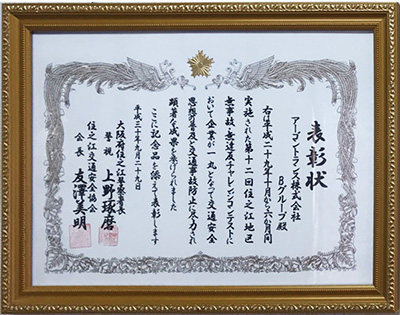 表彰状
アーゴントランス株式会社
Bグループ殿
右は平成二十九年十月から六か月間
実施された第十二回住之江地区
無事故・無違反チャレンジコンテストに
おいて企業が一丸となって交通安全
思想の普及と交通事故防止に尽力され
顕著な成果を挙げられました
ここに記念品を添えて表彰します
平成三十年九月二十九日
大阪府住之江警察署長
警視 上野琢磨
住之江交通安全協会
会長 友澤美明